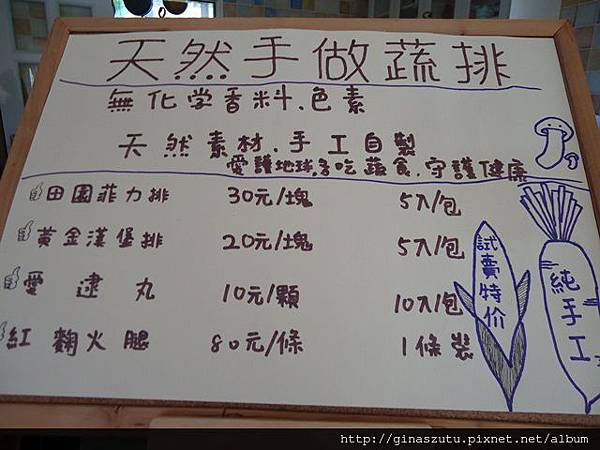 天然手做蔬排
無化学香料.色素
天然素材.手工自製
愛護地球,多吃蔬食.守護健康
田園菲力排 30元/塊 5入/包
黃金漢堡排 20元/塊 5入/包
愛逮丸 10元/顆 10入/包
紅麴火腿 80元/條 1條裝
試賣特价
純手工
http://ginaszutu.pixnet.net/album